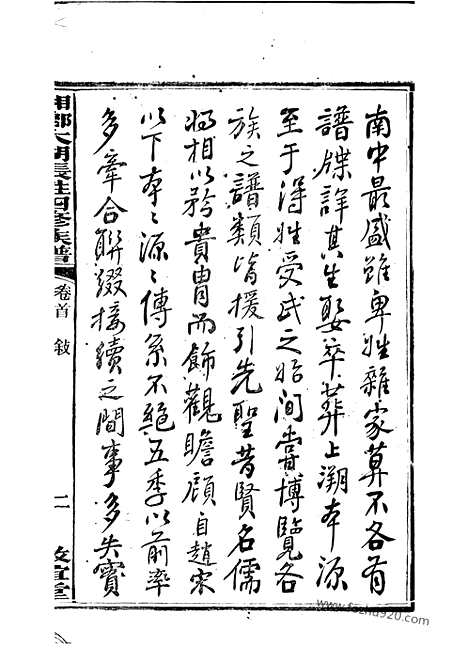 南中最盛雖卑姓雜家莫不各有
譜牒詳其生娶卒葬上溯本源
至于得姓受氏之始间嘗博覽各
族之譜類皆援引先聖昔賢名儒
將相以矜貴胄而飾觀瞻顧自趙宋
以下本〻源〻傳系不絕五季以前率
多牽合聯綴接續之間事多失實
四修族譜
卷首 敘
二
www.fozhu920.com